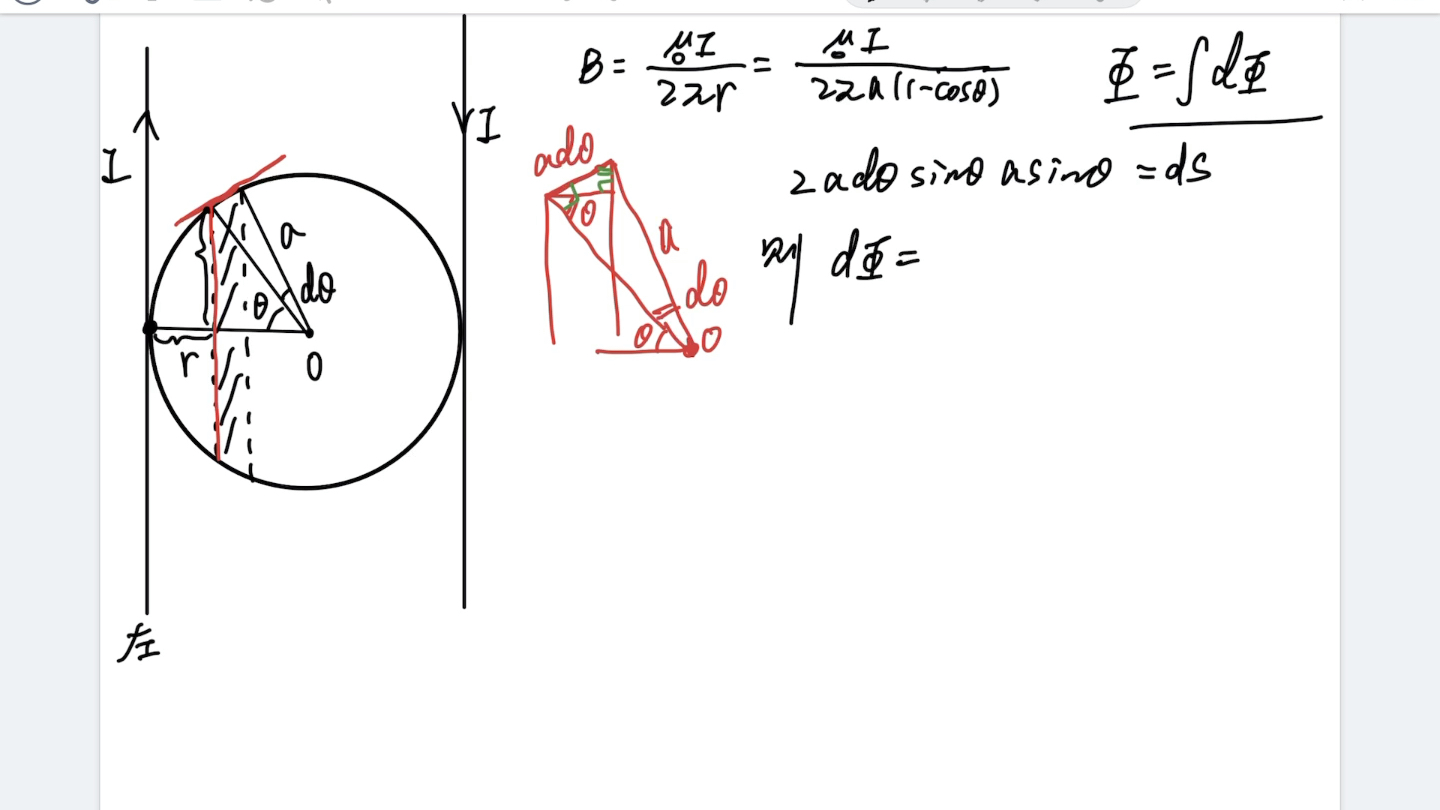 B = μ₀I / 2πr = μ₀I / 2πa(1-cosθ)
Φ = ∫dΦ
2adθ sinθ a sinθ = dS
则 dΦ =
I
I
a
dθ
θ
r
O
左
adθ
θ
a
dθ
θ
O